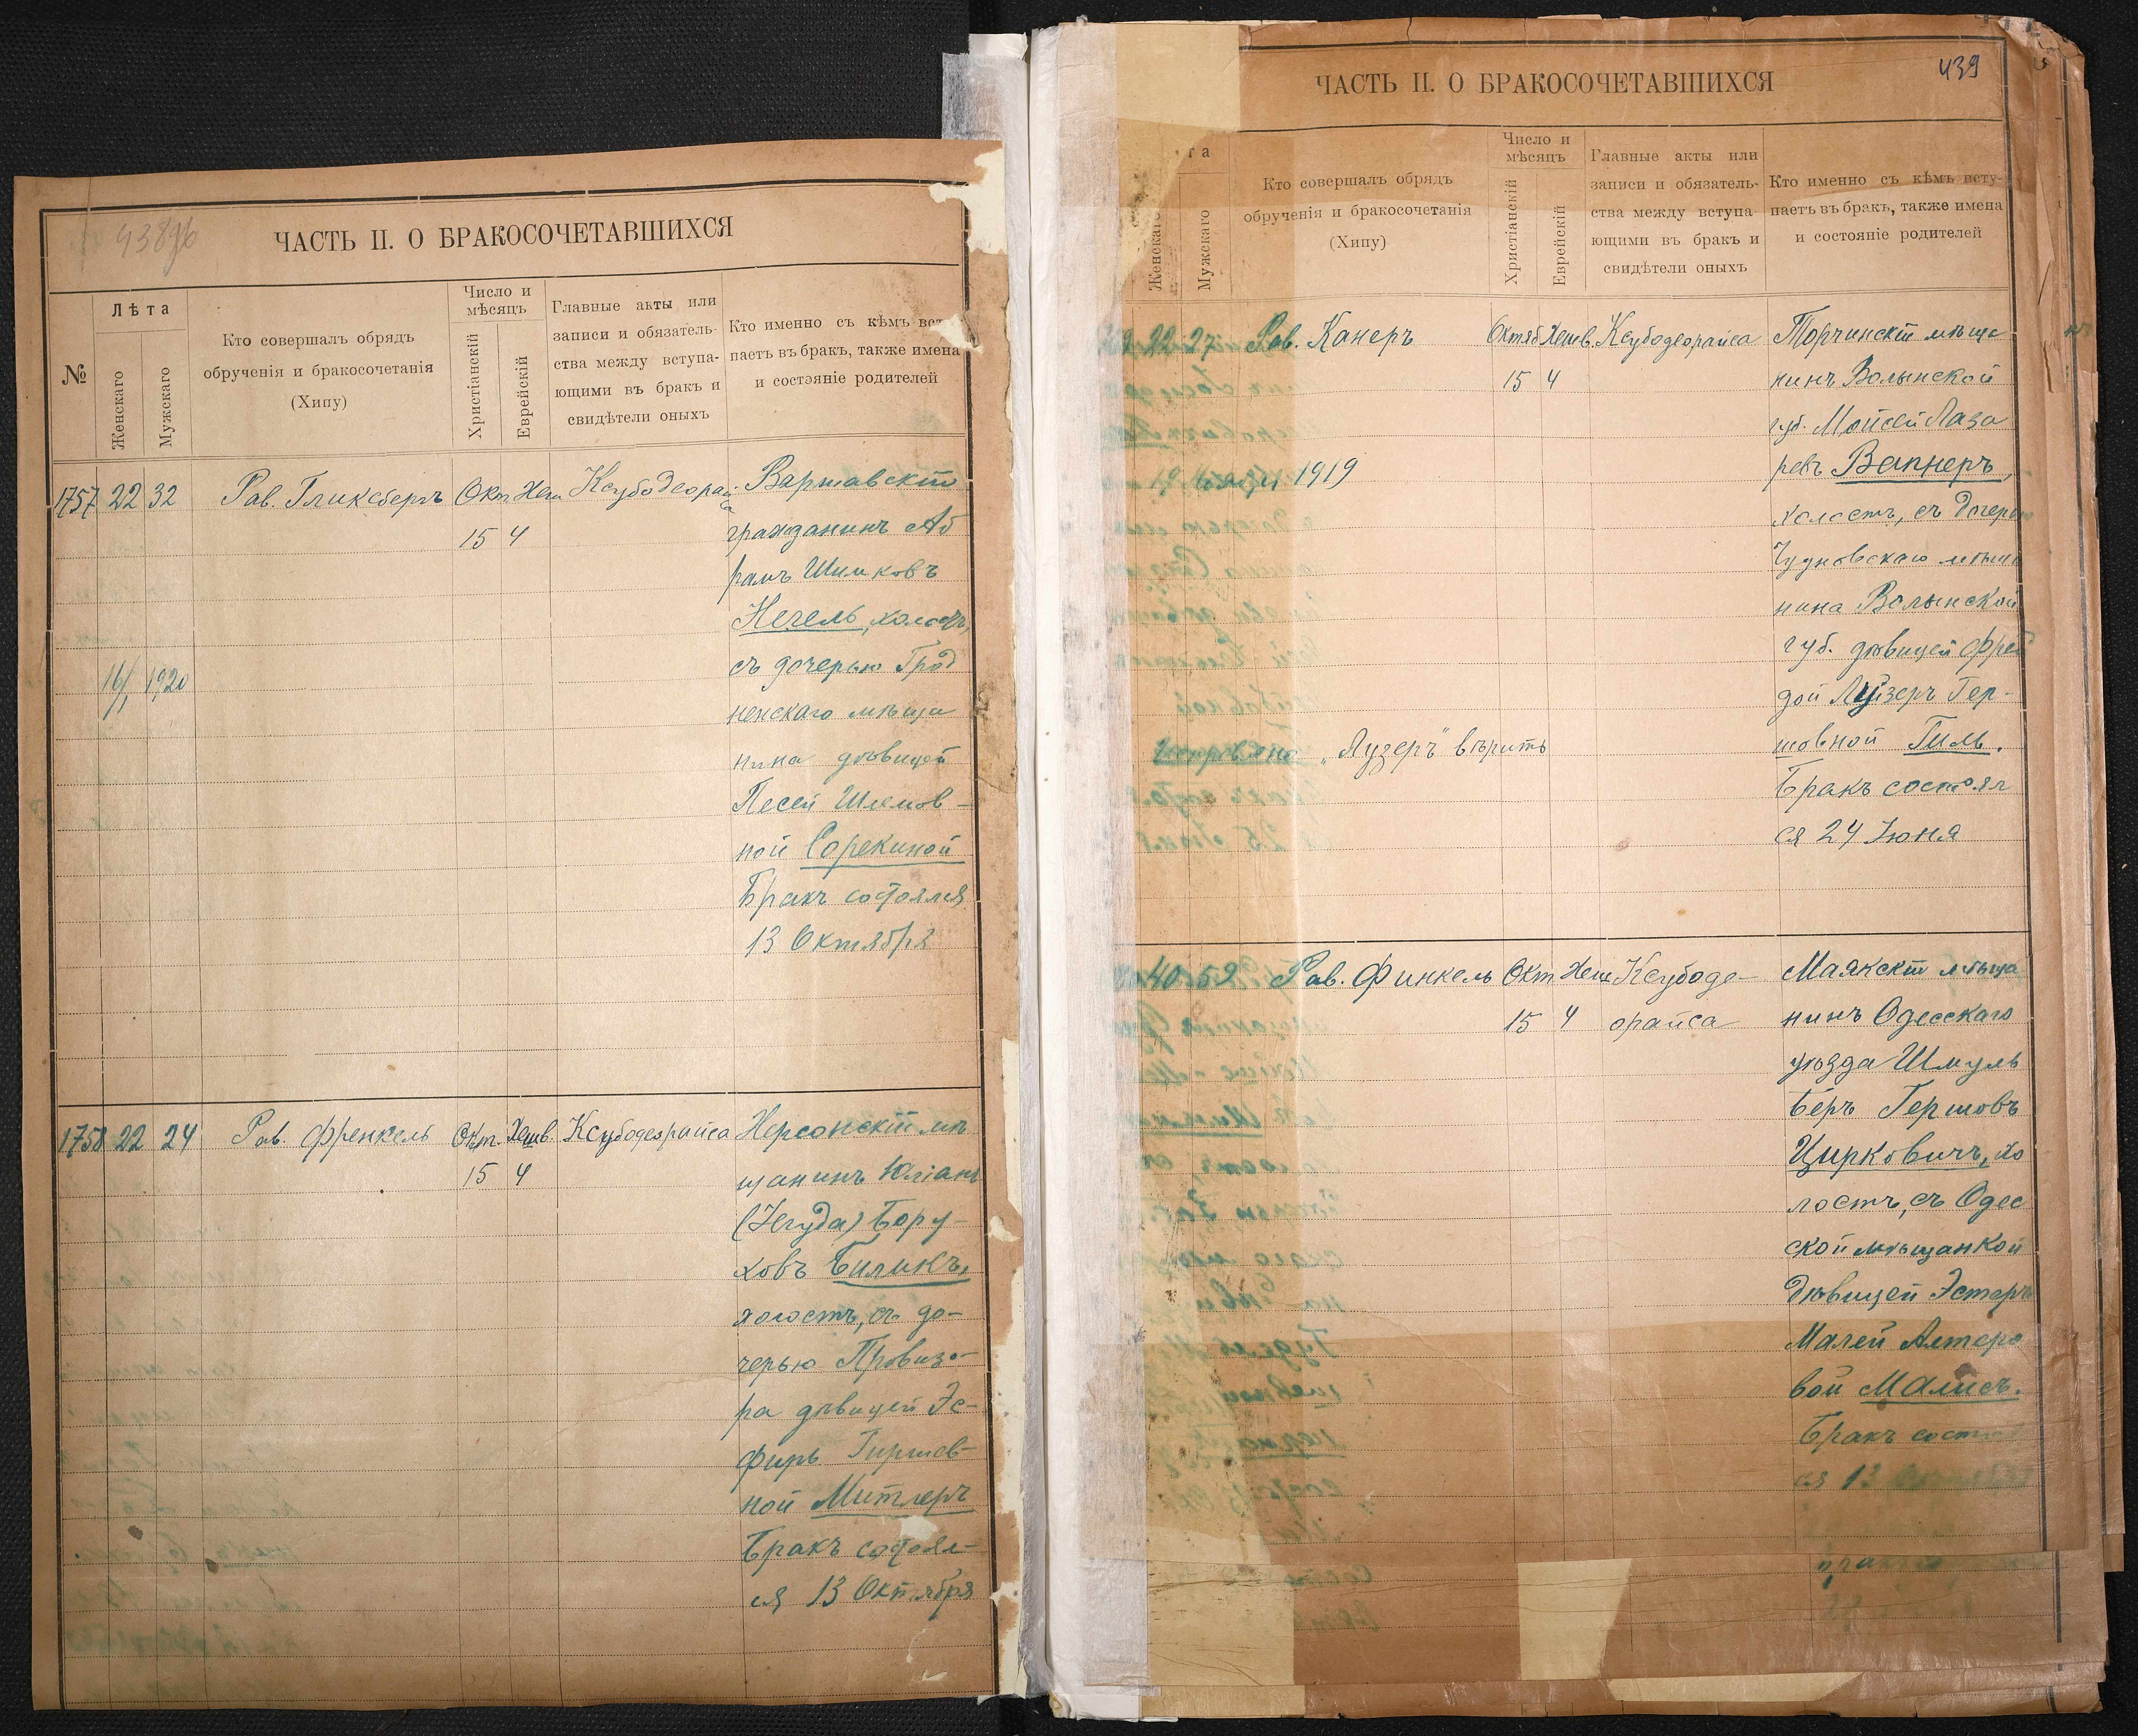 438об
ЧАСТЬ II. О БРАКОСОЧЕТАВШИХСЯ
№
Лѣта
Женскаго
Мужскаго
Кто совершалъ обрядъ
обрученія и бракосочетанія
(Хипу)
Число и
мѣсяцъ
Христіанскій
Еврейскій
Главные акты или
записи и обязатель-
ства между вступа-
ющими въ бракъ и
свидѣтели оныхъ
Кто именно съ кѣмъ вст
паетъ въ бракъ, также имена
и состояніе родителей
1757 22 32 Рав. Гликсбергъ Окт. Хеш Ксубодеорай Варшавскій
са
15 4 гражданинъ Аб
рамъ Шимковъ
Нечель, холостъ,
съ дочерью Грод
16/I 1920
ненскаго мѣща
нина дѣвицей
Песей Шлемов-
ной Сорекиной
Бракъ состоялся
13 Октября
1758 22 24 Рав. Френкель Окт. Хешв. Ксубодеорайса Херсонскій мѣ
15 4 щанинъ Юліанъ
(Іегуда) Бору-
ховъ Биликъ,
холостъ, съ до-
черью Провизо-
ра дѣвицей Эс-
фирь Гиршев-
ной Митлеръ
Бракъ состоял-
ся 13 Октября
439
ЧАСТЬ II. О БРАКОСОЧЕТАВШИХСЯ
та
Женскаго
Мужскаго
Кто совершалъ обрядъ
обрученія и бракосочетанія
(Хипу)
Число и
мѣсяцъ
Христіанскій
Еврейскій
Главные акты или
записи и обязатель-
ства между вступа-
ющими въ бракъ и
свидѣтели оныхъ
Кто именно съ кѣмъ всту-
паетъ въ бракъ, также имена
и состояніе родителей
22 27 Рав. Канеръ Октяб Хешв. Ксубодеорайса Торчинскій мѣща
15 4 нинъ Волынской
губ. Мойсей Лаза
ревъ Вапнеръ,
1919
холостъ, съ дочерью
Чудновскаго мѣща
нина Волынской
губ. дѣвицей Фрей
дой Луизеръ Гер-
шовной Гиль.
„Лузеръ" вѣрить
Бракъ состоял
ся 24 Іюня
40 52 Рав. Финкель Окт Хеш Ксубоде- Маякскій мѣща
15 4 орайса нинъ Одесскаго
уѣзда Шмуль
Беръ Гершовъ
Цирковичъ, хо
лостъ, съ Одес
ской мѣщанкой
дѣвицей Эстеръ
Малей Алтеро
вой Малисъ.
Бракъ состо
ся 13